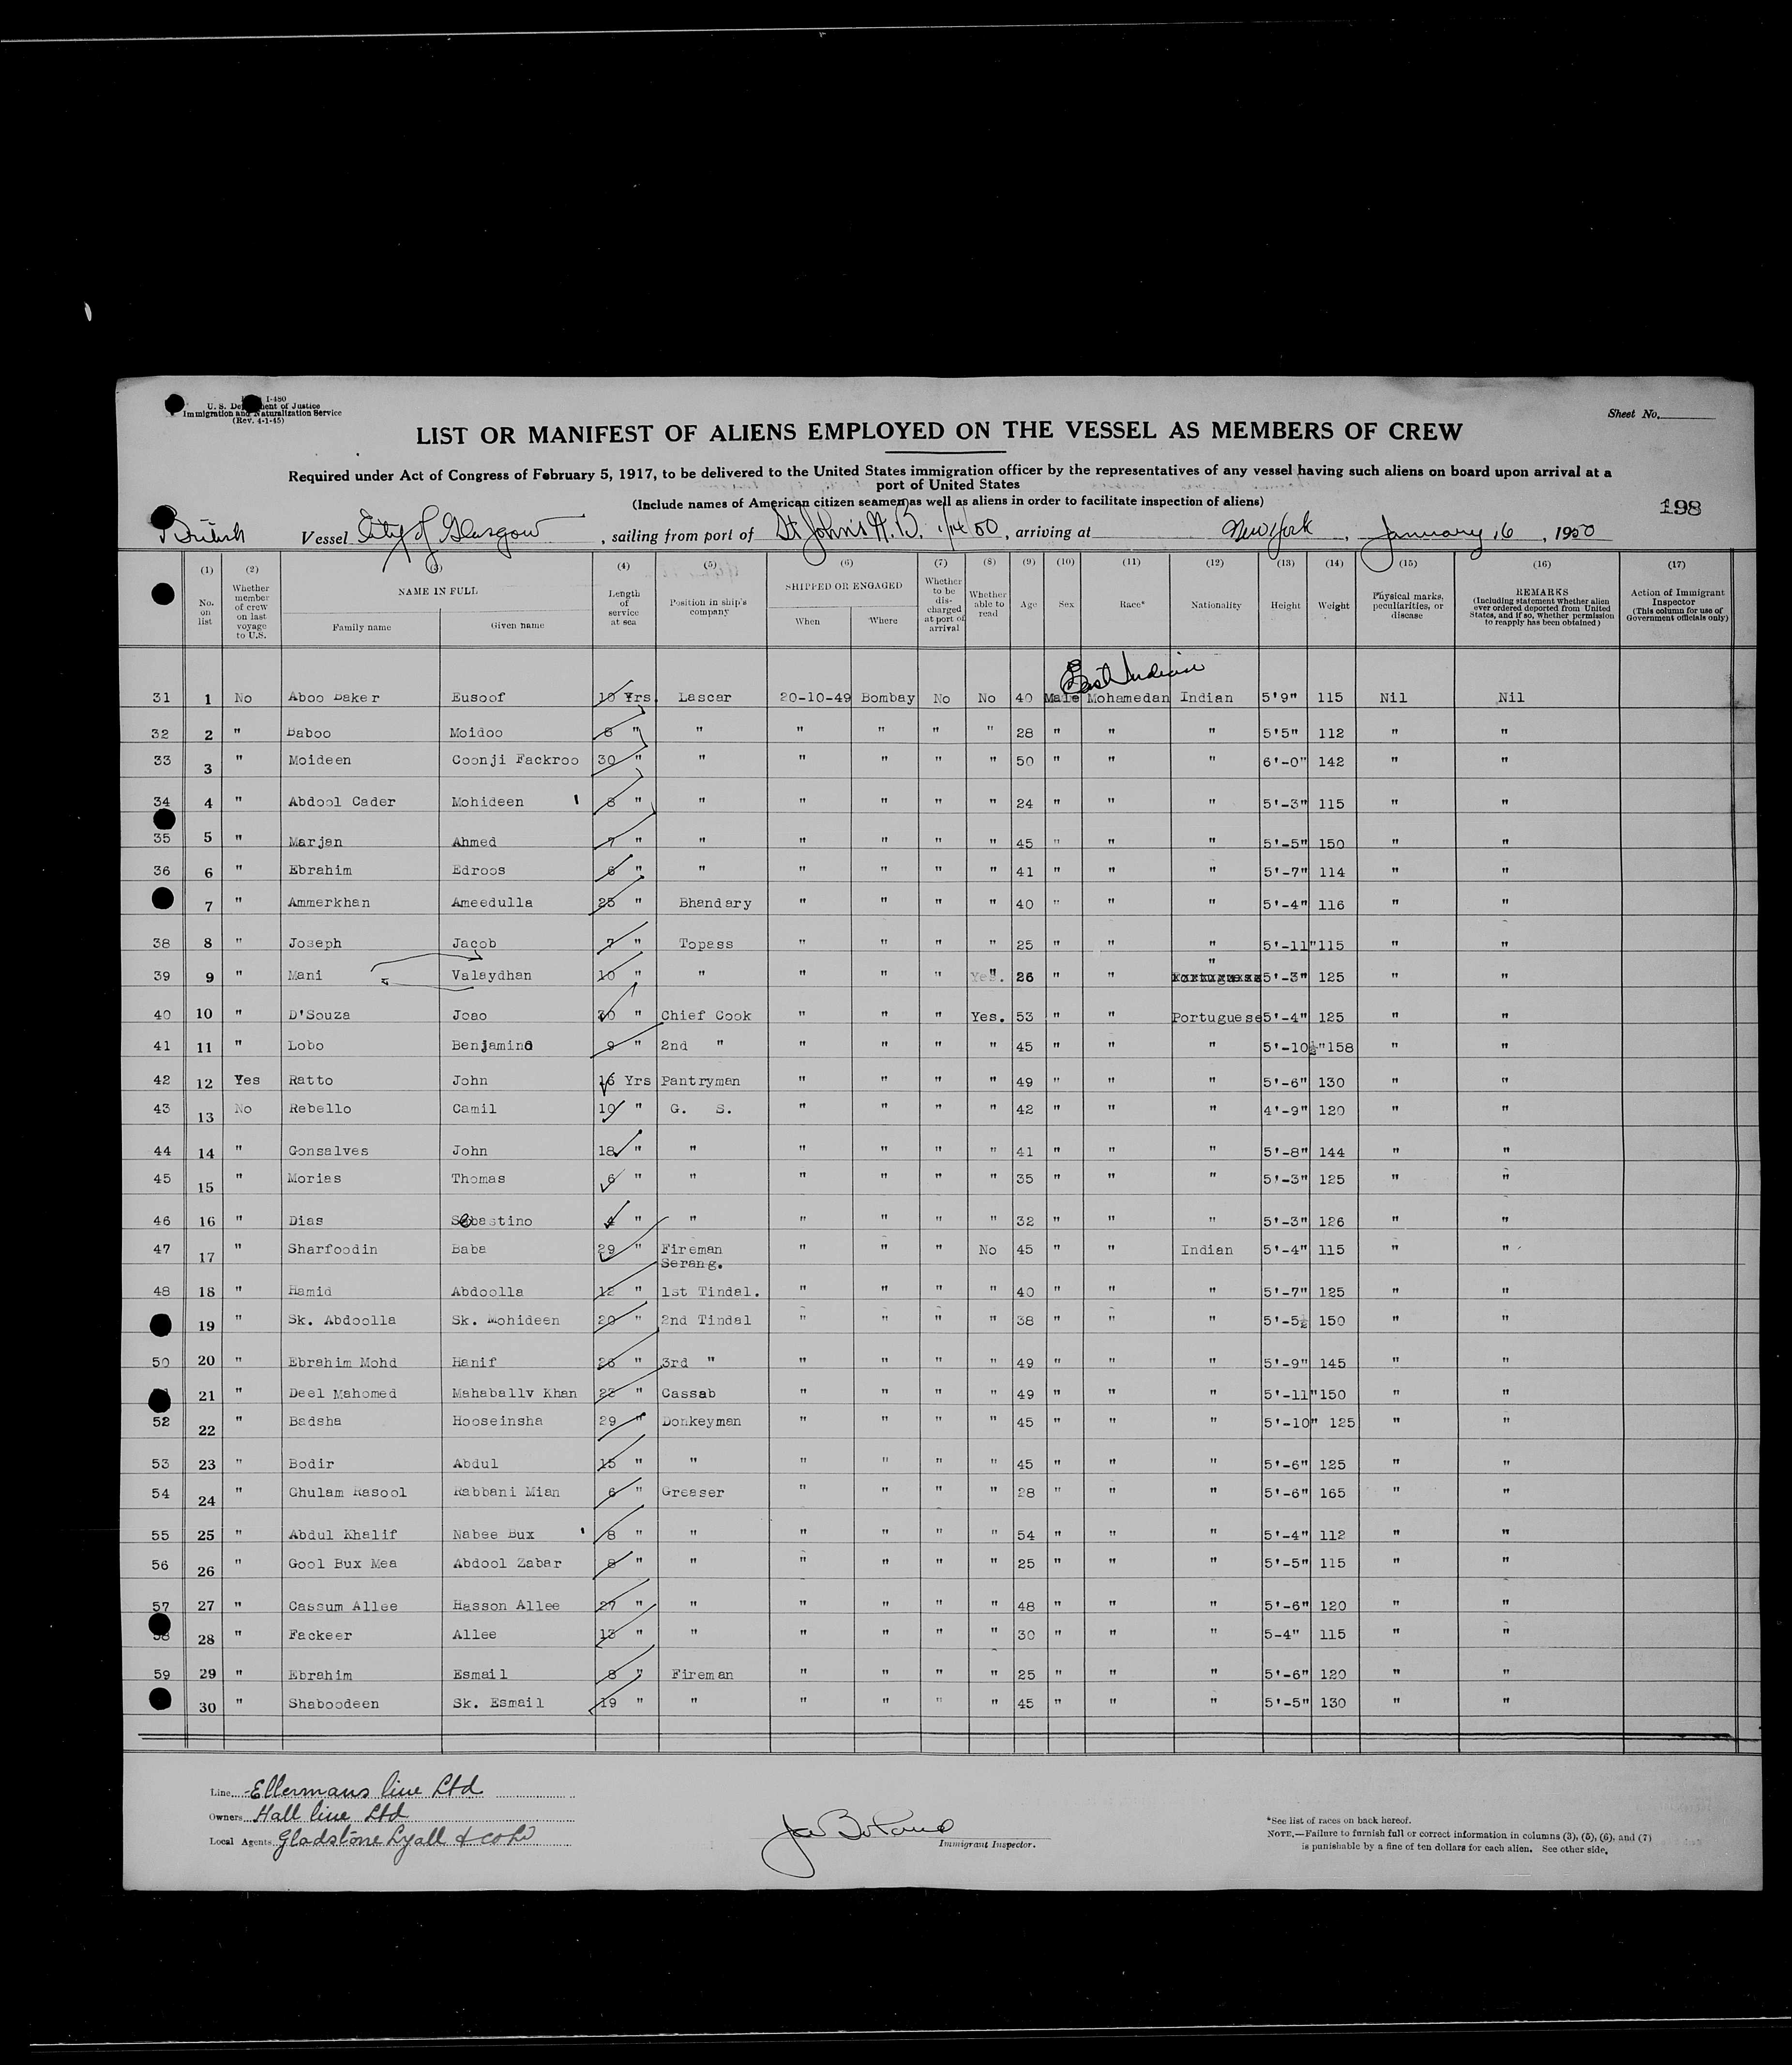 I-480
U. S. Department of Justice
Immigration and Naturalization Service
(Rev. 4-1-45)
Sheet No.
LIST OR MANIFEST OF ALIENS EMPLOYED ON THE VESSEL AS MEMBERS OF CREW
Required under Act of Congress of February 5, 1917, to be delivered to the United States immigration officer by the representatives of any vessel having such aliens on board upon arrival at a
port of United States
(Include names of American citizen seamen as well as aliens in order to facilitate inspection of aliens)
198
British Vessel City of Glasgow, sailing from port of St John's N.B. 1/14/50, arriving at New York, January 16, 1950
(1) No. on list (2) Whether member of crew on last voyage to U.S. (3) NAME IN FULL Family name Given name (4) Length of service at sea (5) Position in ship's company (6) SHIPPED OR ENGAGED When Where (7) Whether to be discharged at port of arrival (8) Whether able to read (9) Age (10) Sex (11) Race* (12) Nationality (13) Height (14) Weight (15) Physical marks, peculiarities, or disease (16) REMARKS (Including statement whether alien ever ordered deported from United States, and if so, whether permission to reapply has been obtained) (17) Action of Immigrant Inspector (This column for use of Government officials only)
East Indian
31 1 No Aboo Baker Eusoof 10 Yrs. Lascar 20-10-49 Bombay No No 40 Male Mohamedan Indian 5'9" 115 Nil Nil
32 2 " Baboo Moidoo 8 " " " " " " 28 " " " 5'5" 112 " "
33 3 " Moideen Coonji Fackroo 30 " " " " " " 50 " " " 6'-0" 142 " "
34 4 " Abdool Cader Mohideen 8 " " " " " " 24 " " " 5'-3" 115 " "
35 5 " Marjan Ahmed 7 " " " " " " 45 " " " 5'-5" 150 " "
36 6 " Ebrahim Edroos 6 " " " " " " 41 " " " 5'-7" 114 " "
7 " Ammerkhan Ameedulla 25 " Bhandary " " " " 40 " " " 5'-4" 116 " "
38 8 " Joseph Jacob 7 " Topass " " " " 25 " " " 5'-11" 115 " "
39 9 " Mani Valaydhan 10 " " " " " Yes. " 26 " " " 5'-3" 125 " "
40 10 " D'Souza Joao 30 " Chief Cook " " " Yes. 53 " " Portuguese 5'-4" 125 " "
41 11 " Lobo Benjamino 9 " 2nd " " " " " 45 " " " 5'-10½" 158 " "
42 12 Yes Ratto John 16 Yrs Pantryman " " " " 49 " " " 5'-6" 130 " "
43 13 No Rebello Camil 10 " G. S. " " " " 42 " " " 4'-9" 120 " "
44 14 " Gonsalves John 18 " " " " " " 41 " " " 5'-8" 144 " "
45 15 " Morias Thomas 6 " " " " " " 35 " " " 5'-3" 125 " "
46 16 " Dias Sebastino 4 " " " " " " 32 " " " 5'-3" 126 " "
47 17 " Sharfoodin Baba 29 " Fireman Serang. " " " No 45 " " Indian 5'-4" 115 " "
48 18 " Hamid Abdoolla 12 " 1st Tindal. " " " " 40 " " " 5'-7" 125 " "
19 " Sk. Abdoolla Sk. Mohideen 20 " 2nd Tindal " " " " 38 " " " 5'-5½ 150 " "
50 20 " Ebrahim Mohd Hanif 26 " 3rd " " " " " 49 " " " 5'-9" 145 " "
21 " Deel Mahomed Mahaballv Khan 28 " Cassab " " " " 49 " " " 5'-11" 150 " "
52 22 " Badsha Hooseinsha 29 " Donkeyman " " " " 45 " " " 5'-10" 125 " "
53 23 " Bodir Abdul 15 " " " " " " 45 " " " 5'-6" 125 " "
54 24 " Ghulam Rasool Rabbani Mian 6 " Greaser " " " " 28 " " " 5'-6" 165 " "
55 25 " Abdul Khalif Nabee Bux 8 " " " " " " 54 " " " 5'-4" 112 " "
56 26 " Gool Bux Mea Abdool Zabar 8 " " " " " " 25 " " " 5'-5" 115 " "
57 27 " Cassum Allee Hasson Allee 27 " " " " " " 48 " " " 5'-6" 120 " "
58 28 " Fackeer Allee 13 " " " " " " 30 " " " 5-4" 115 " "
59 29 " Ebrahim Esmail 8 " Fireman " " " " 25 " " " 5'-6" 120 " "
30 " Shaboodeen Sk. Esmail 19 " " " " " " 45 " " " 5'-5" 130 " "
Line Ellermans line Ltd
Owners Hall line Ltd
Local Agents Gladstone Lyall & Co Ld
Immigrant Inspector.
*See list of races on back hereof.
NOTE.—Failure to furnish full or correct information in columns (3), (5), (6), and (7)
is punishable by a fine of ten dollars for each alien. See other side.